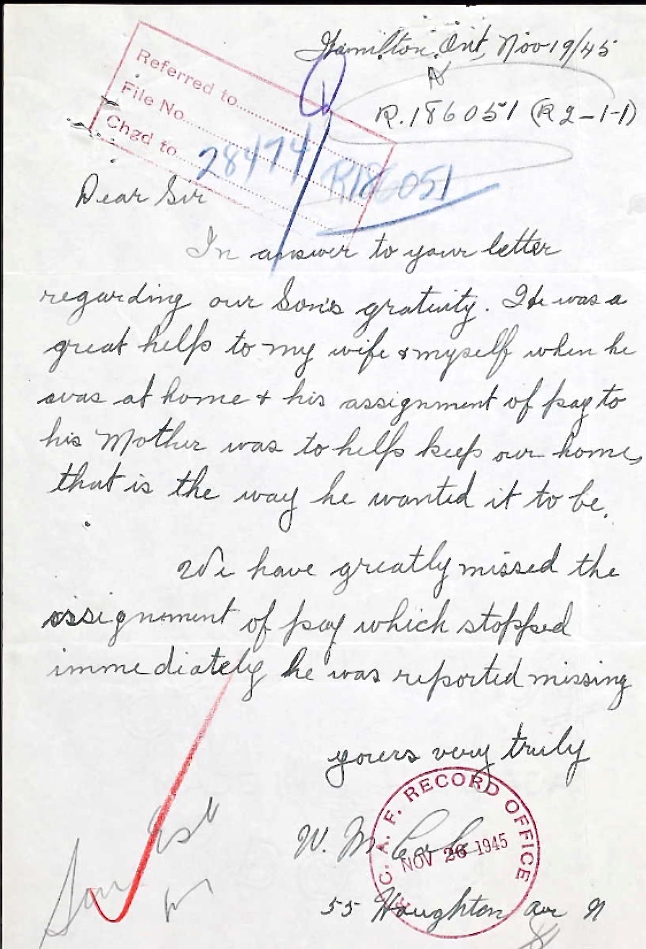 Hamilton, Ont, Nov 19/45
R.186051 (R2-1-1)
Referred to
File No
Chgd to
28474 / R186051
Dear Sir
In answer to your letter
regarding our Son's gratuity. He was a
great help to my wife & myself when he
was at home & his assignment of pay to
his Mother was to help keep our home,
that is the way he wanted it to be.
We have greatly missed the
assignement of pay which stopped
immediately he was reported missing
yours very truly
W. M.
R. C. A. F. RECORD OFFICE
NOV 26 1945
55 Houghton Ave N